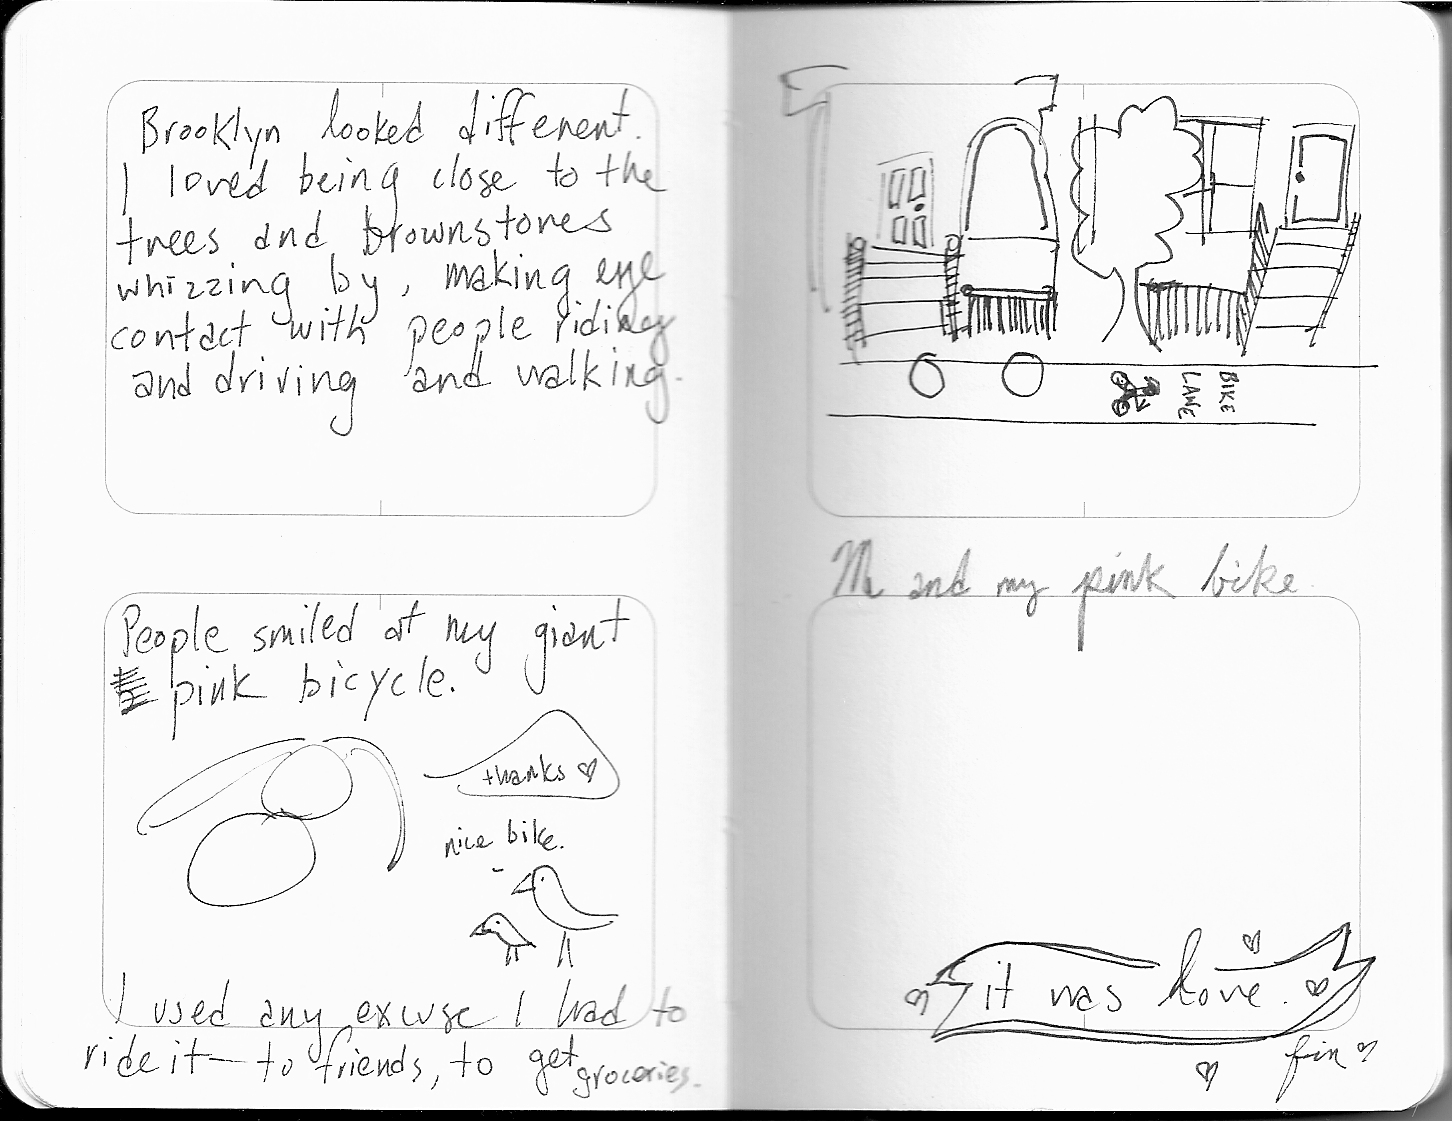 Brooklyn looked different.
I loved being close to the
trees and brownstones
whizzing by, making eye
contact with people riding
and driving and walking.
People smiled at my giant
pink bicycle.
thanks ♡
nice bike.
I used any excuse I had to
ride it—to friends, to get groceries.
BIKE
LANE
M and my pink bike
it was love.
fin ♡